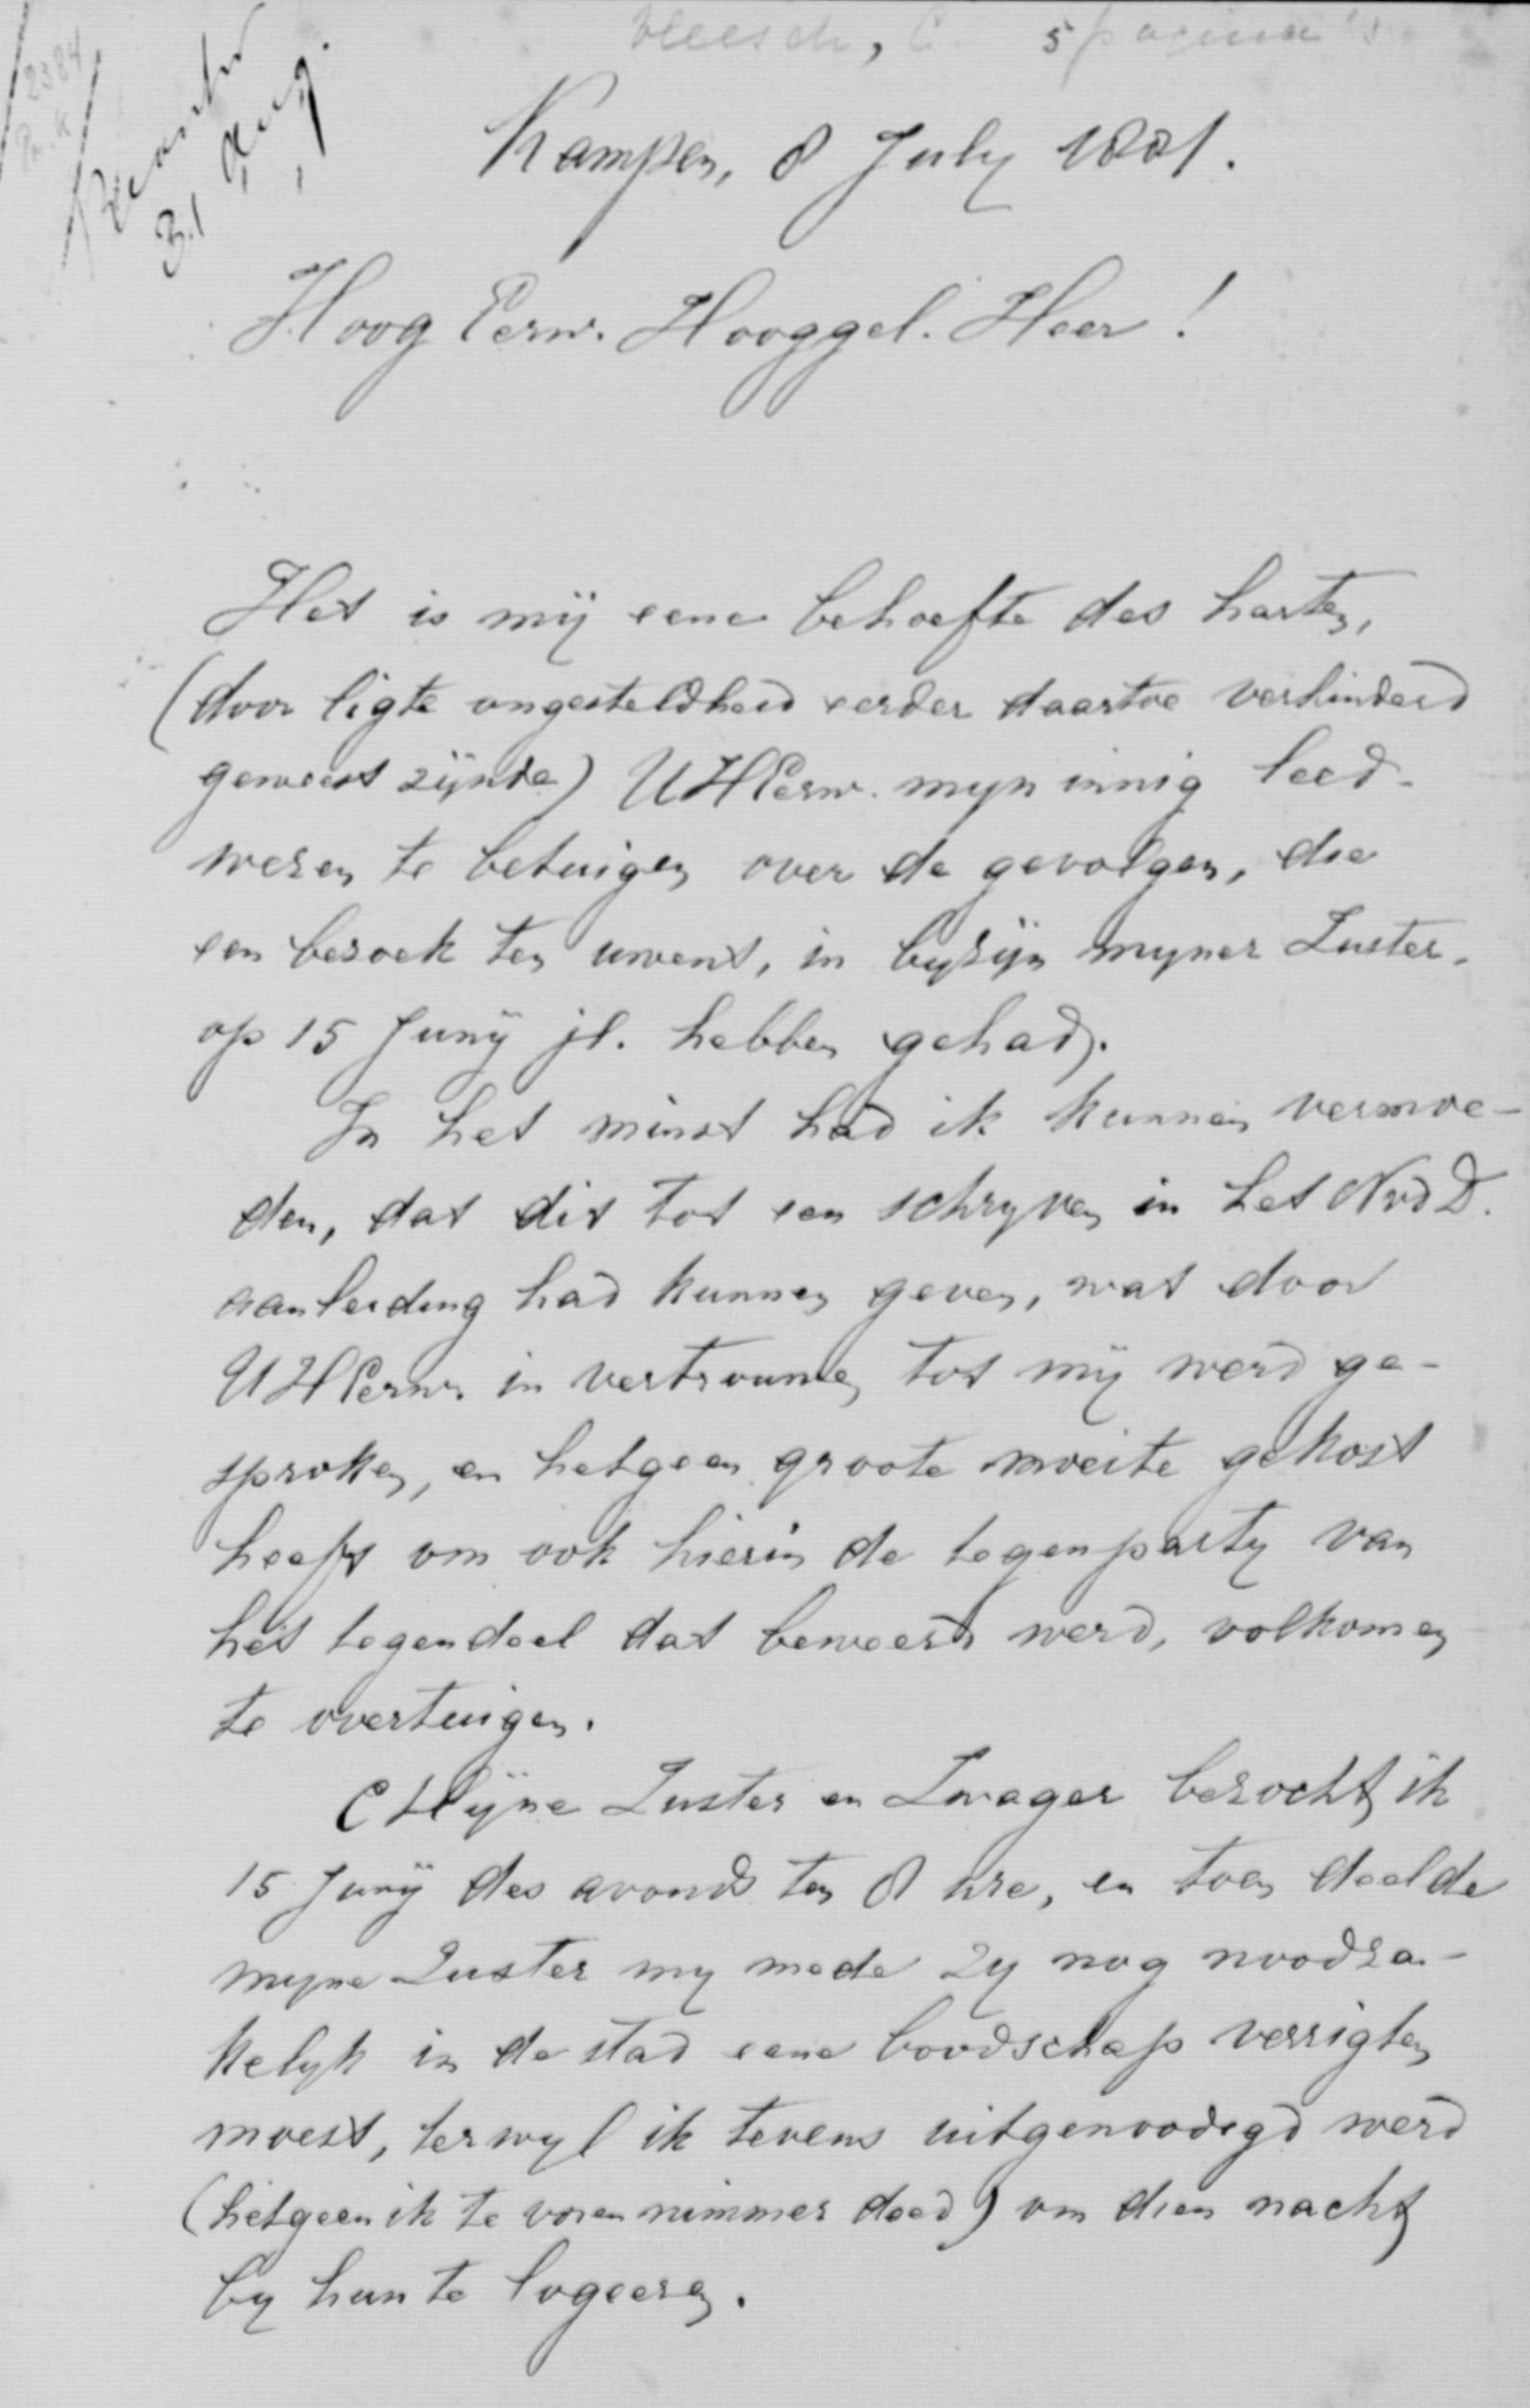 5 pagina's
31 Aug.
Kampen, 8 July 1881.
Hoog Eerw. Hooggel. Heer!
Het is mij eene behoefte des harten,
(door ligte ongesteldheid eerder daartoe verhinderd
geweest zijnde) UHEerw. mijn innig leed-
wezen te betuigen over de gevolgen, die
een bezoek ten uwent, in byzijn myner Zuster,
op 15 Junij jl. hebben gehad.
In het minst had ik kunnen vermoe-
den, dat dit tot een schryven in het NvdD.
aanleiding had kunnen geven, wat door
UHEerw. in vertrouwen tot mij werd ge-
sproken, en hetgeen groote moeite gekost
heeft om ook hierin de tegenparty van
het tegendeel dat beweerd werd, volkomen
te overtuigen.
Mijne Zuster en Zwager bezocht ik
15 Junij des avonds ten 8 ure, en toen deelde
myne Zuster my mede zy nog noodza-
kelyk in de stad eene boodschap verrigten
moest, terwyl ik tevens uitgenoodigd werd
(hetgeen ik te voren nimmer deed) om dien nacht
by hun te logeeren.